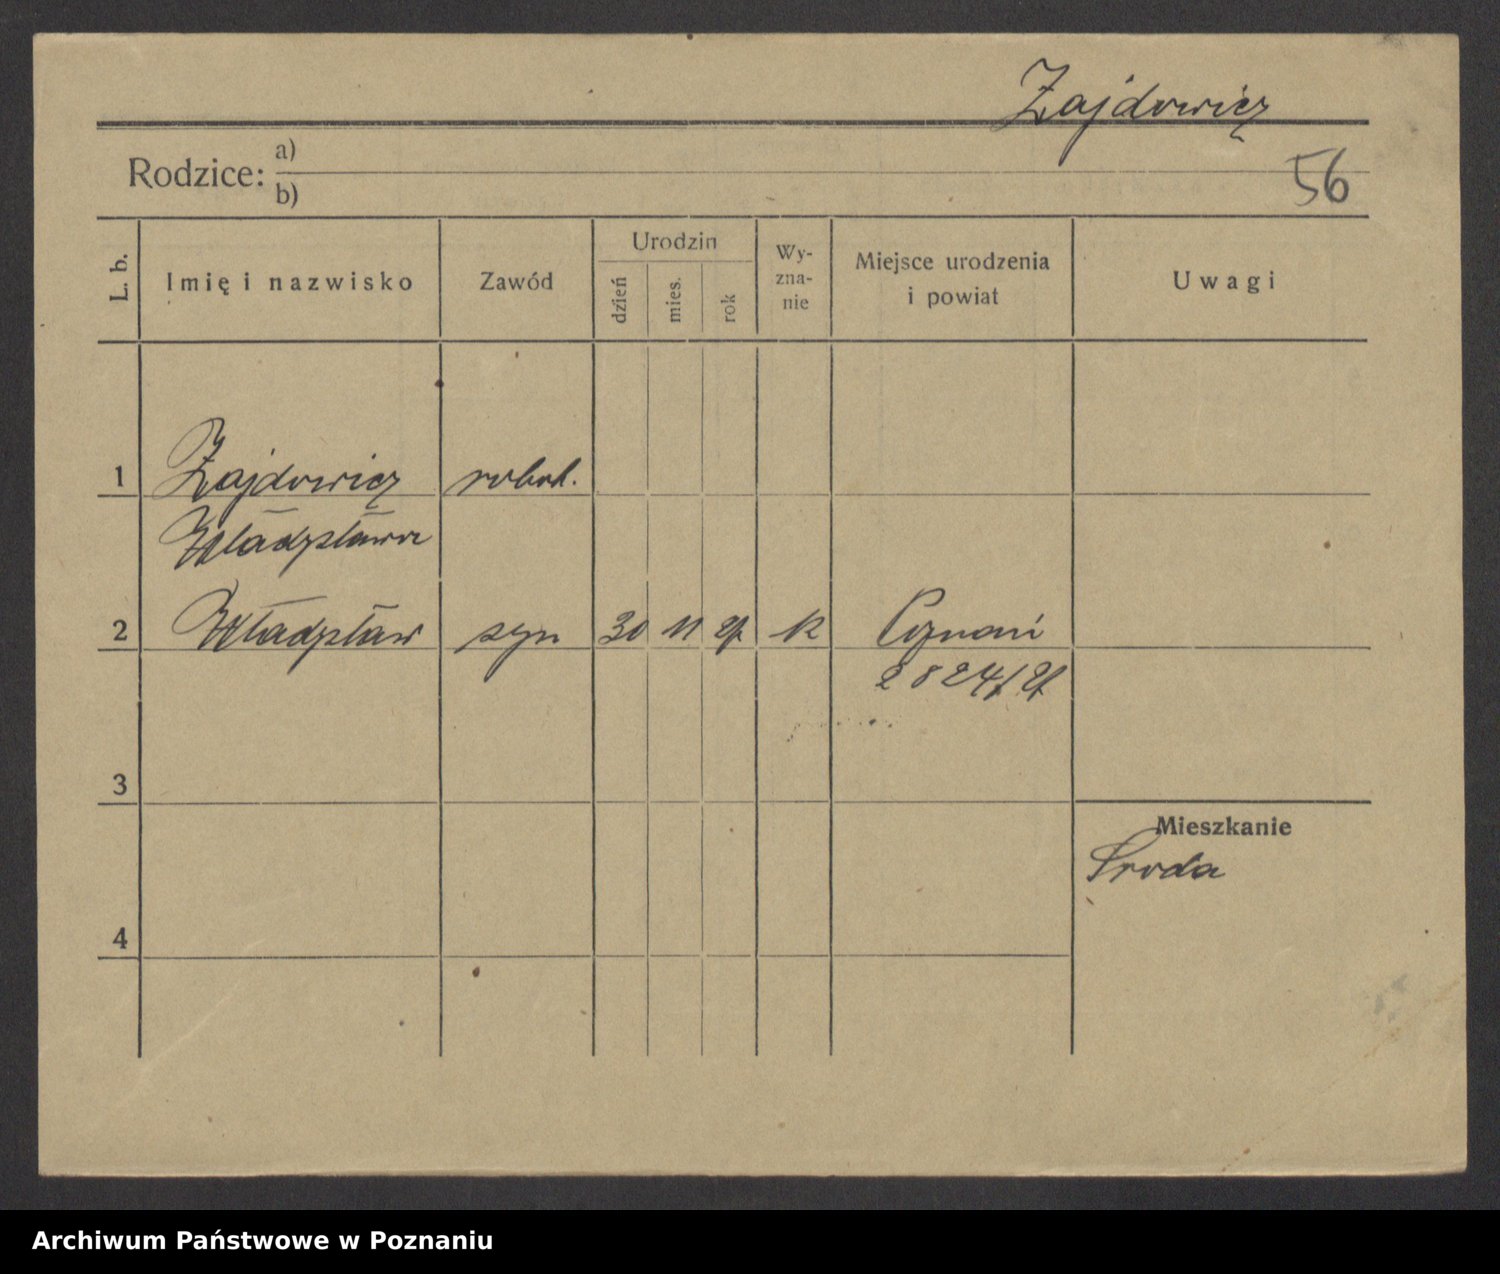 Zajdowicz
Rodzice: a)
b)
56
L. b.
Imię i nazwisko
Zawód
Urodzin
dzień
mies.
rok
Wy-
zna-
nie
Miejsce urodzenia
i powiat
Uwagi
1 Zajdowicz robot.
Władysława
2 Władysław syn 30 11 k Poznań
3
Mieszkanie
Sroda
4
Archiwum Państwowe w Poznaniu